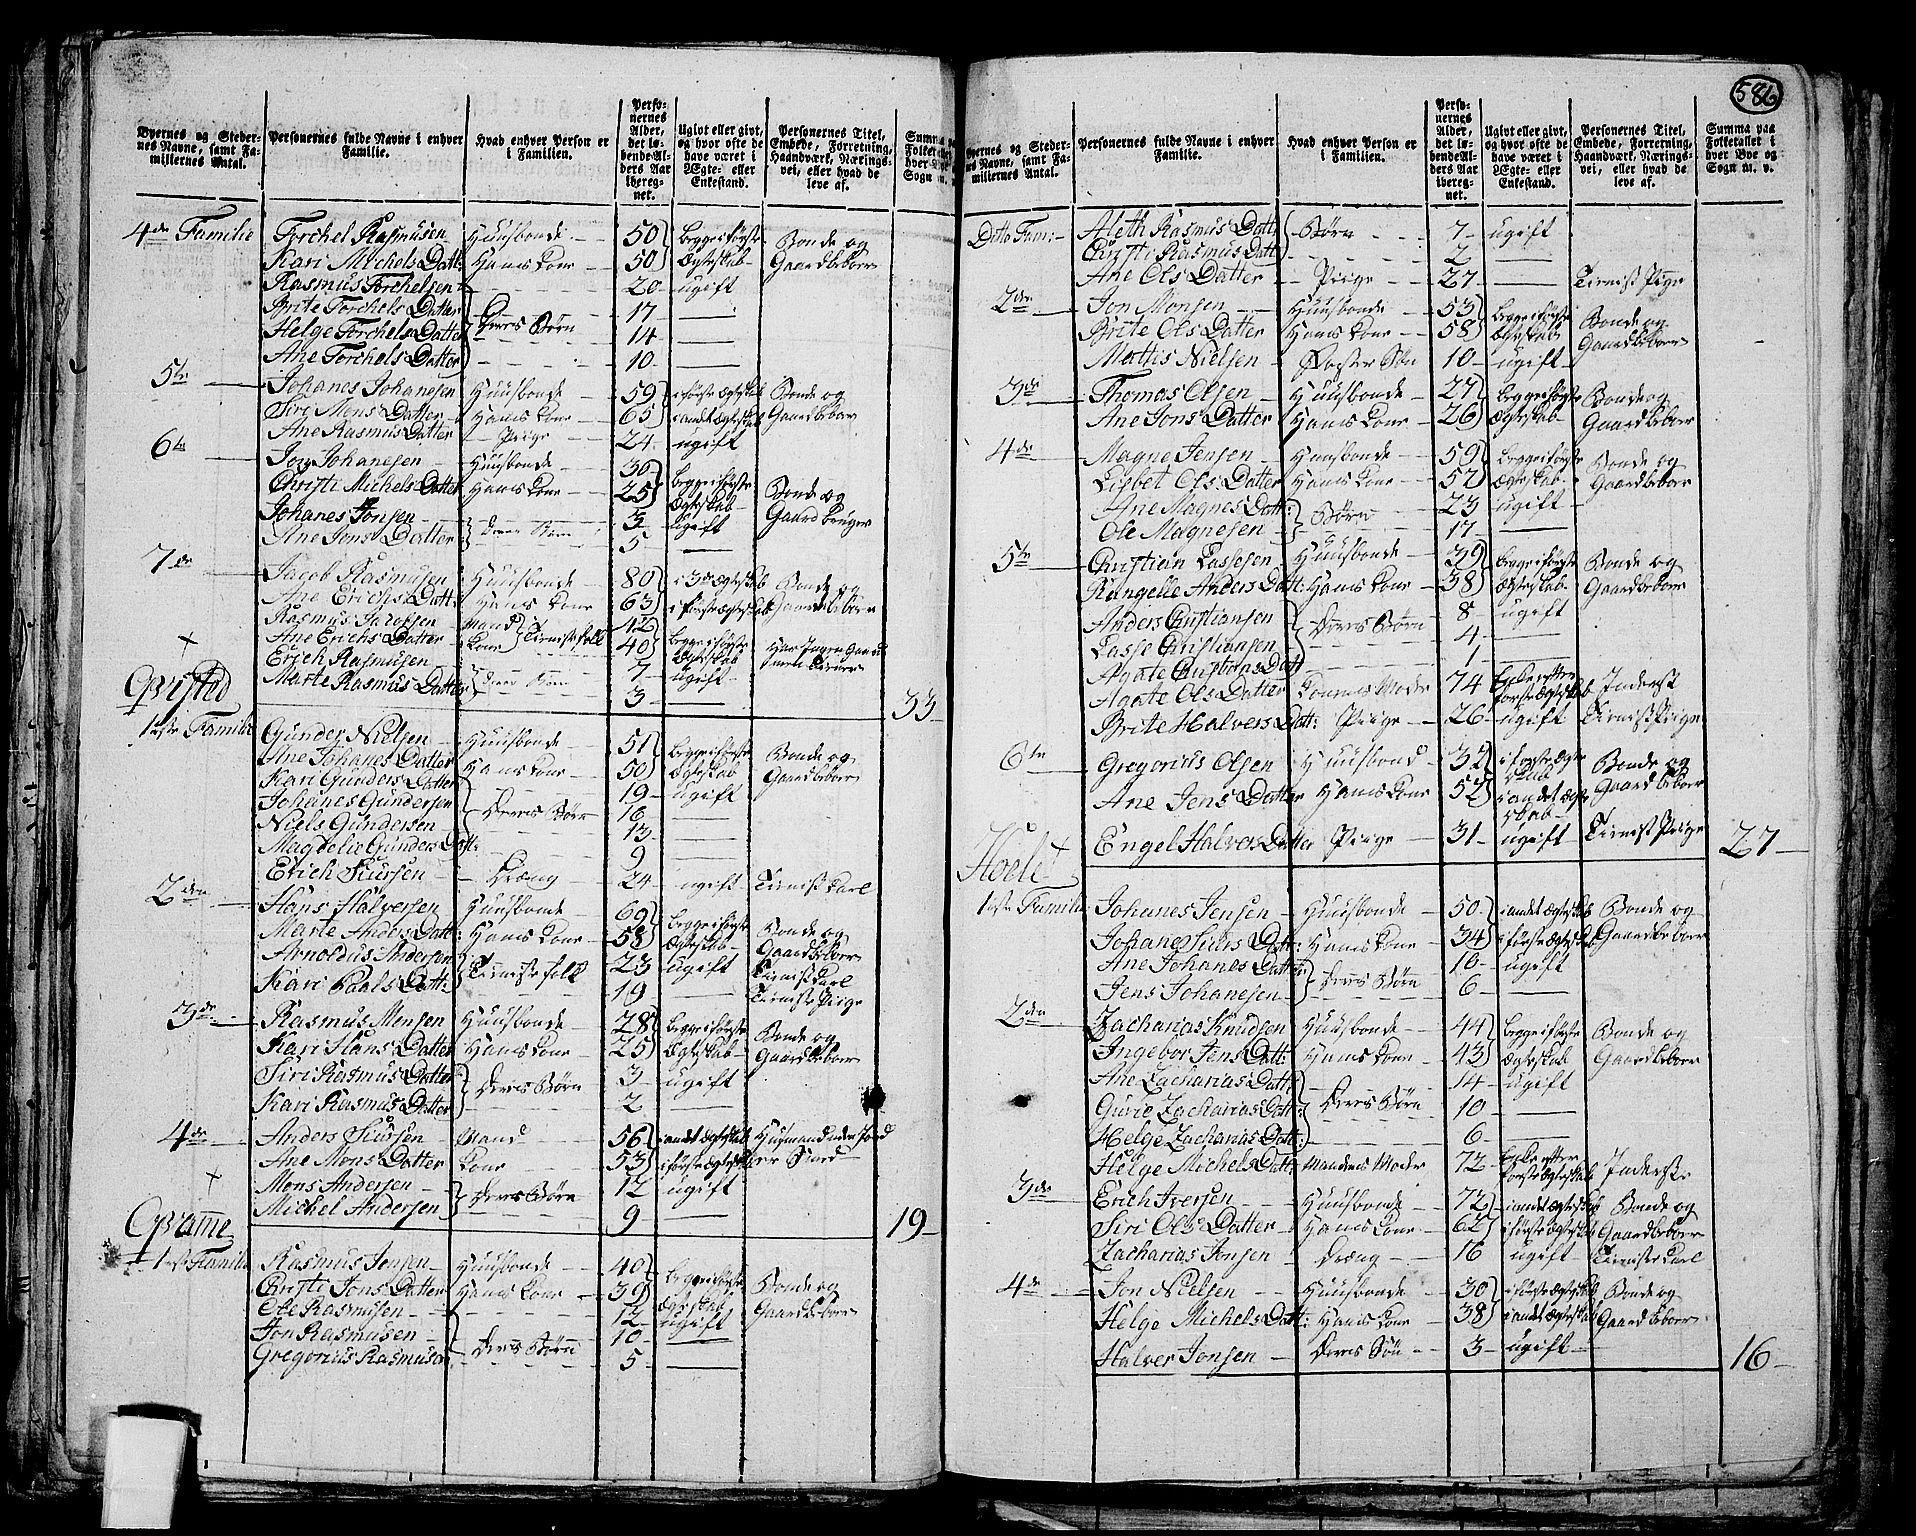 586
Byernes og Stedernes Navne, samt Familiernes Antal.
Personernes fulde Navne i enhver Familie.
Hvad enhver Person er i Familien.
Personernes Alder, det løbende Alders Aar iberegnet.
Ugivt eller givt, og hvor ofte de have været i Ægte- eller Enkestand.
Personernes Titel, Embede, Forretning, Haandværk, Næringsvei, eller hvad de leve af.
4de Familie Torchel Rasmusen Huusbonde 50 begge i første Bonde og
Kari Michels Datt: Hans Kone 50 Ægteskab Gaardbeboer
Rasmus Torchelsen 20 ugift
Brite Torchels Datter 17
Helge Torchels Datter Deres Børn 14
Ane Torchels Datter 10
5te Johanes Johanesen Huusbonde 59 i første Ægteskab Bonde og
Siri Mons Datter Hans Kone 65 i andet Ægteskab Gaardbeboer
Ane Rasmus Datter Piige 24 ugift
6te Jon Johanesen Huusbonde 36 begge i første
Christi Michels Datter Hans Kone 25 Ægteskab Bonde og
Johanes Jonsen 3 ugift Gaardbruger
Ane Jons Datter Deres Børn 5
7de Jacob Rasmusen Huusbonde 80 i 3de Ægteskab Bonde og
Ane Erichs Datt: Hans Kone 63 i første Ægteskab Gaardbeboer
Rasmus Jacobsen Mand 42
Ane Erichs Datter Kone Tieneste folk 40 begge i første Har Ingen Gaard
Erich Rasmusen 7 ugift men tiener
Marte Rasmus Datter Deres Børn 3
33
Qvistad
1ste Familie Gunder Nielsen Huusbonde 51 begge i første Bonde og
Ane Johanes Datter Hans Kone 50 Ægteskab Gaardbeboer
Kari Gunders Datter 19 ugift
Johanes Gundersen Deres Børn 16
Niels Gundersen 13
Magdelie Gunders Datt: 9
Erich Siursen Dreng 24 ugift Tieniste Karl
2den Hans Halversen Huusbonde 69 begge i første
Marte Anders Datt: Hans Kone 58 Ægteskab Bonde og Gaardbeboer
Arnoldus Andersen Tieniste folk 23 ugift Tieniste Karl
Kari Paals Datt: 19 Tieniste Piige
3de Rasmus Monsen Huusbonde 28 begge i første Bonde og
Kari Hans Datter Hans Kone 25 Ægteskab Gaardbeboer
Siri Rasmus Datter Deres Børn 3 ugift
Kari Rasmus Datter 2
4de Anders Siursen Mand 56 i andet Ægteskab
Ane Mons Datter Kone 53 i første Ægteskab
Mons Andersen Deres Børn 12 ugift
Michel Andersen 9
19
Qvame
1ste Familie Rasmus Jonsen Huusbonde 40 begge i første Bonde og
Christi Jons Datter Hans Kone 39 Ægteskab Gaardbeboer
Ole Rasmusen 12 ugift
Jon Rasmusen Deres Børn 10
Gregorius Rasmusen 5
Byernes og Stedernes Navne, samt Familiernes Antal.
Personernes fulde Navne i enhver Familie.
Hvad enhver Person er i Familien.
Personernes Alder, det løbende Alders Aar iberegnet.
Ugivt eller givt, og hvor ofte de have været i Ægte- eller Enkestand.
Personernes Titel, Embede, Forretning, Haandværk, Næringsvei, eller hvad de leve af.
Summa paa Folketallet i hver Bye og Sogn m. v.
Dito Fam: Aleth Rasmus Datt: Børn 7 ugift
Christi Rasmus Datt: 2
Ane Ols Datter Piige 27 Tienist Piige
2den Jon Monsen Huusbonde 53 begge i første Bonde og
Brite Ols Datter Hans Kone 58 Ægteskab Gaardbeboer
Mattis Nielsen Foster Søn 10 ugift
3de Thomas Olsen Huusbonde 27 begge i første Bonde og
Ane Jons Datter Hans Kone 26 Ægteskab Gaardbeboer
4de Magne Jensen Huusbonde 59 begge i første Bonde og
Lisbet Ols Datter Hans Kone 57 Ægteskab Gaardbeboer
Ane Magnes Datt: Børn 23 ugift
Ole Magnesen 17
5te Christian Lassesen Huusbonde 39 begge i første Bonde og
Rangelle Anders Datt: Hans Kone 38 Ægteskab Gaardbeboer
Anders Christiansen 8 ugift
Lasse Christiansen Deres Børn 4
Agate Christians Datt: 1
Agate Ols Datter Konens Moder 74 Enke efter første Ægteskab Inderst
Brite Halvers Datt: Piige 26 ugift Tienist Piige
6te Gregorius Olsen Huusbond 32 i første Ægteskab Bonde og
Ane Jens Datter Hans Kone 52 i andet Ægteskab Gaardbeboer
Engel Halvers Datter Piige 31 ugift Tienist Piige
27
1ste Familie Johanes Jensen Huusbonde 50 i andet Ægteskab Bonde og
Johane Siurs Datt: Hans Kone 34 i første Ægteskab Gaardbeboer
Ane Johanes Datter Deres Børn 16 ugift
Jens Johanesen 6
2den Zacharias Knudsen Huusbonde 44 begge i første Bonde og
Ingebor Jens Datt: Hans Kone 43 Ægteskab Gaardbeboer
Ane Zacharias Datt: 14 ugift
Gurie Zacharias Datt: Deres Børn 10
Helge Zacharias Datt: 6
Helge Michels Datt: Mandens Moder 72 Enke efter første Ægteskab Inderste
3de Erich Iversen Huusbonde 72 i andet Ægteskab Bonde og
Siri Ols Datter Hans Kone 62 i første Ægteskab Gaardbeboer
Zacharias Jonsen Dreng 16 ugift Tieniste Karl
4de Jon Nielsen Huusbonde 30 i første Ægteskab Bonde og
Helge Michels Datt: Hans Kone 38 i andet Ægteskab Gaardbeboer
Halver Jonsen Deres Søn 3 ugift
16